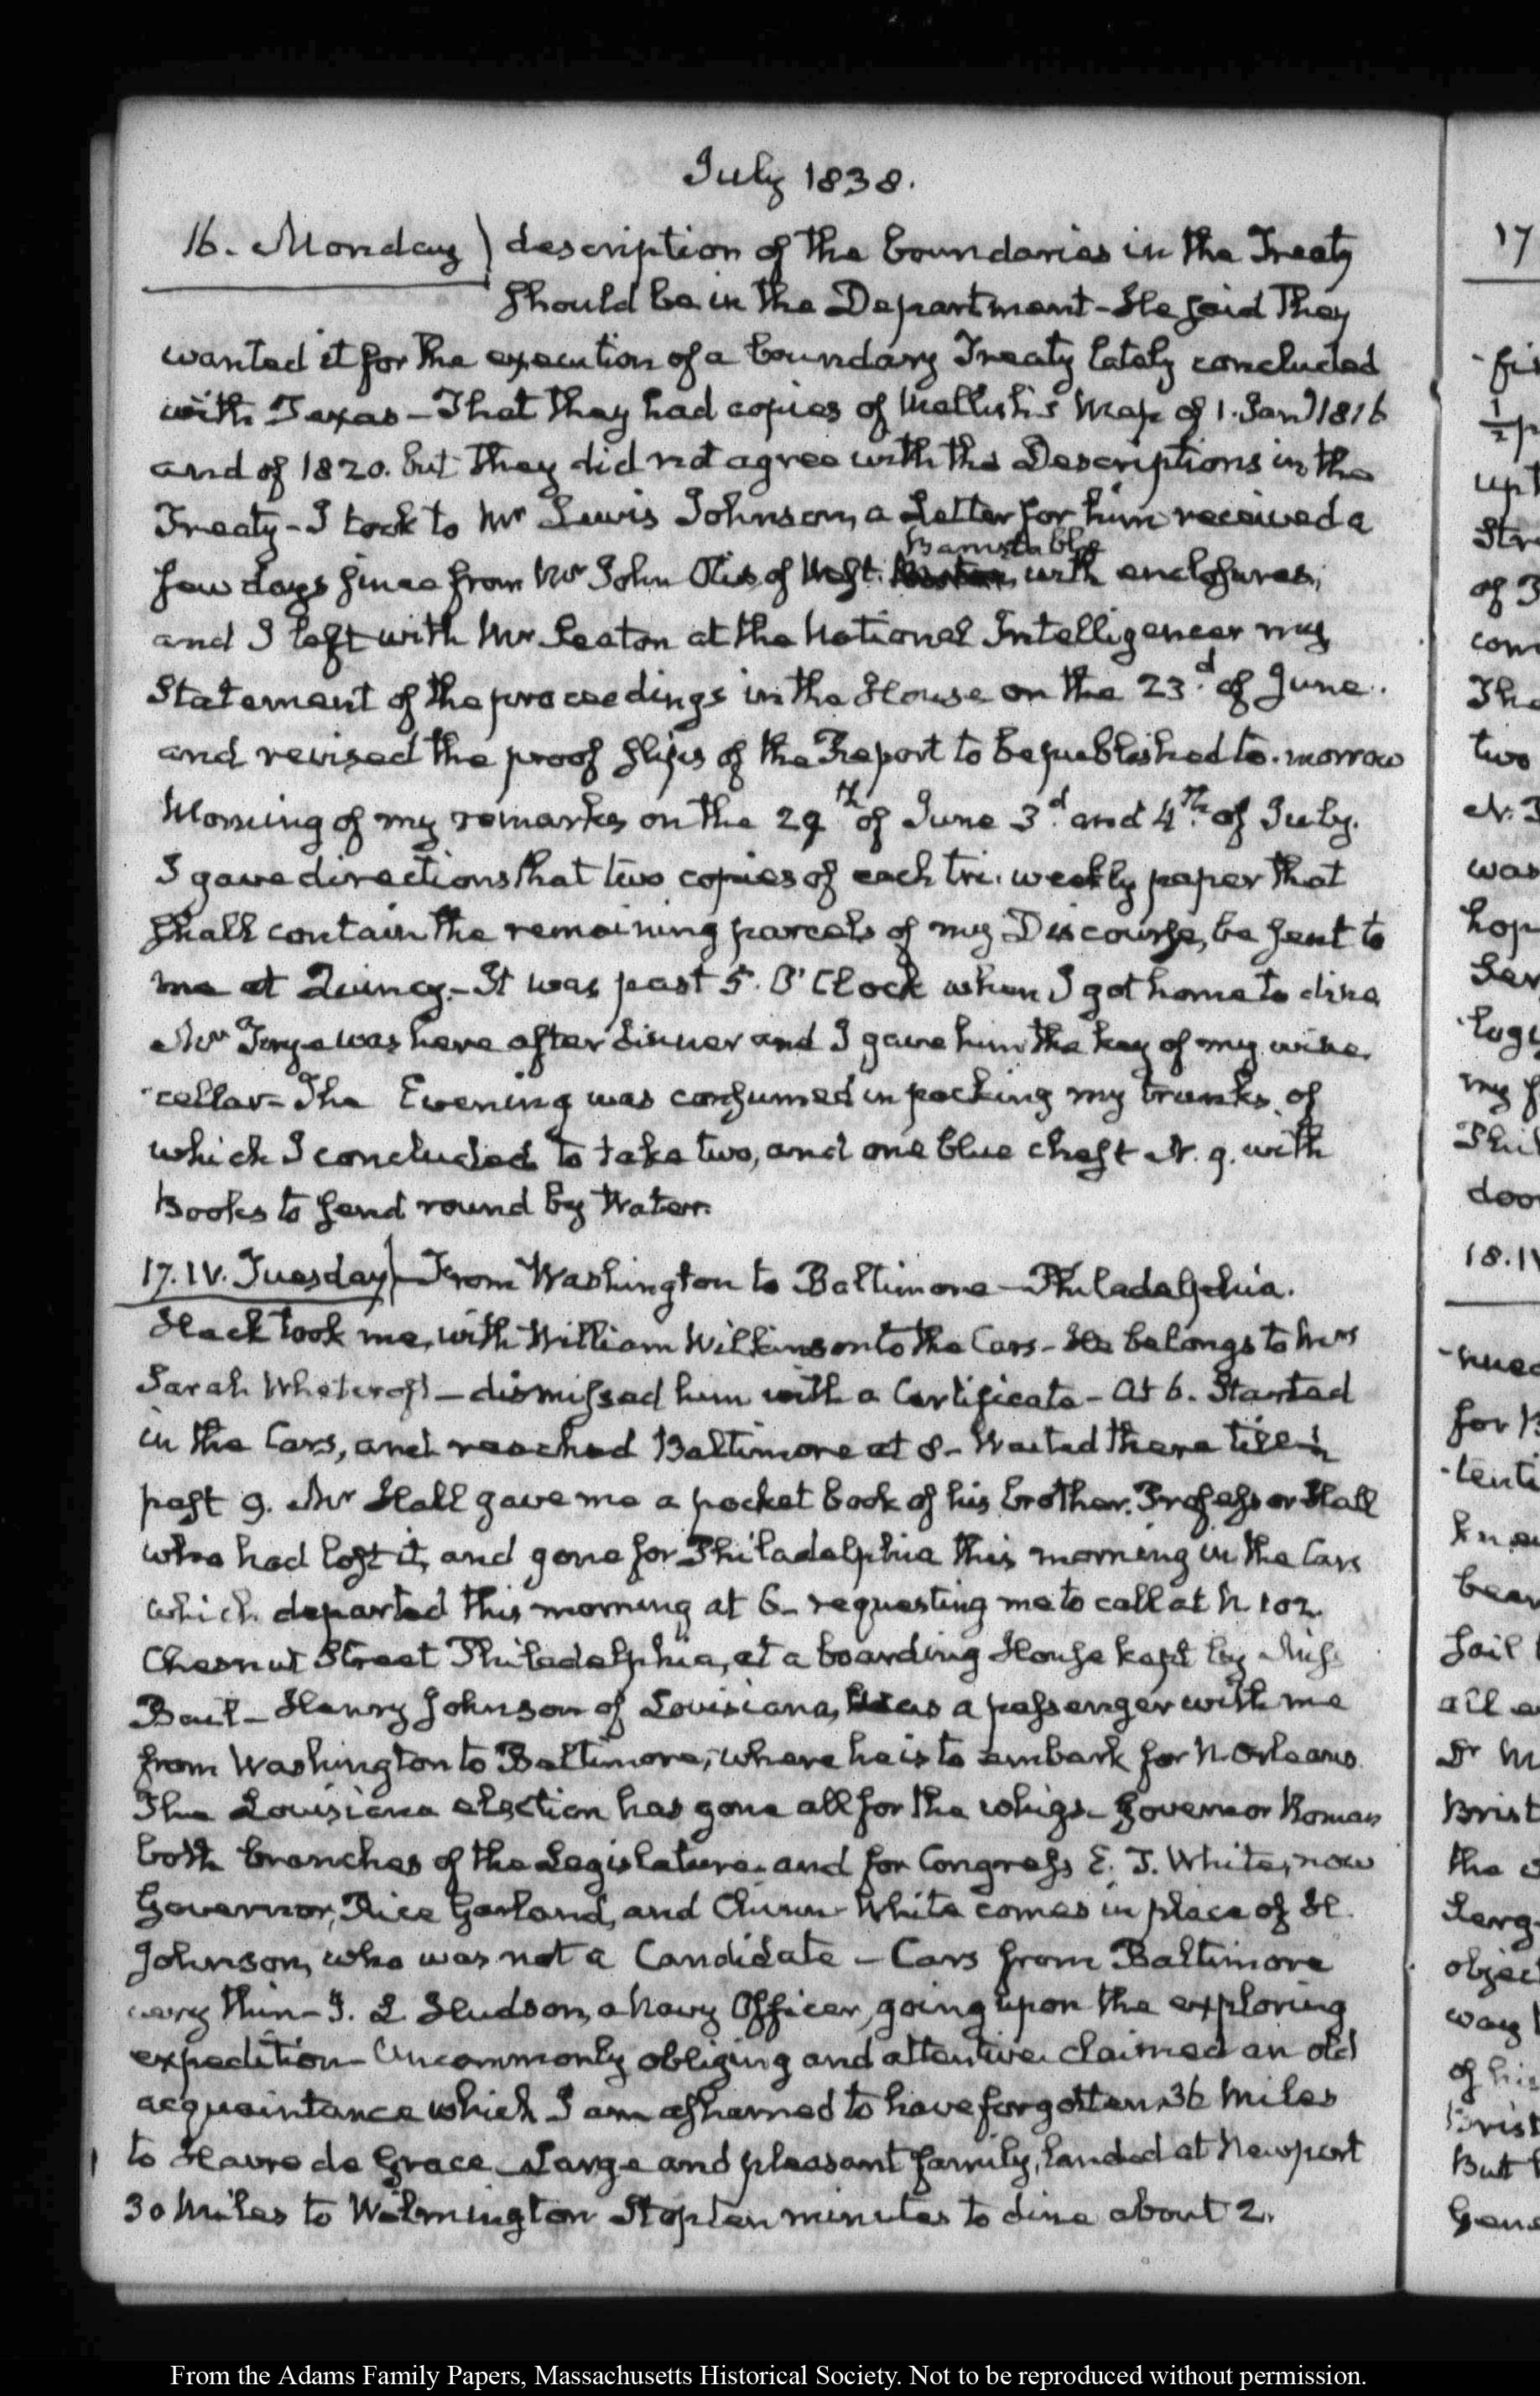 July 1838.
16. Monday) description of the boundaries in the Treaty
should be in the Department - He said they
wanted it for the execution of a boundary Treaty lately concluded
with Texas - That they had copies of Mellish's Map of 1. Jany 1816
and of 1820. but they did not agree with the Descriptions in the
Treaty - I took to Mr Lewis Johnson, a Letter for him received a
Barnstable
few days since from Mr John Otis of West. with enclosures,
and I left with Mr Seaton at the National Intelligencer my
Statement of the proceedings in the House on the 23.d of June.
and revised the proof slips of the Report to be published to-morrow
Morning of my remarks on the 29th of June 3.d and 4.th of July.
I gave directions that two copies of each tri-weekly paper that
shall contain the remaining parcels of my Discourse, be sent to
me at Quincy. - It was past 5. O'Clock when I got home to dine
Mr Frye was here after dinner and I gave him the key of my wine
-cellar - The Evening was consumed in packing my trunks, of
which I concluded to take two, and one blue chest N. 9. with
Books to send round by Water.
17. IV. Tuesday) From Washington to Baltimore - Philadelphia.
Hack took me, with William Wilkinson to the Cars - He belongs to Mrs
Sarah Whetcroft - dismissed him with a Certificate - At 6. Started
in the Cars, and reached Baltimore at 8 - Waited there till ½
past 9. Mr Hall gave me a pocket book of his brother, Professor Hall
who had lost it, and gone for Philadelphia this morning in the Cars
which departed this morning at 6 - requesting me to call at N 102
Chesnut Street Philadelphia, at a boarding House kept by Miss
Henry Johnson of Louisiana, was a passenger with me
from Washington to Baltimore, where he is to embark for N. Orleans.
The Louisiana election has gone all for the whigs - Governor Roman
both branches of the Legislature and for Congress E. D. White, now
Governor, Rice Garland, and Chinn White comes in place of H.
Johnson, who was not a Candidate - Cars from Baltimore
very thin - Hudson, a Navy Officer, going upon the exploring
expedition - Uncommonly obliging and attentive claimed an old
acquaintance which I am ashamed to have forgotten 36 Miles
to Havre de Grace - Large and pleasant family, landed at Newport
30 Miles to Wilmington Stop ten minutes to dine about 2.
17
18. IV
From the Adams Family Papers, Massachusetts Historical Society. Not to be reproduced without permission.